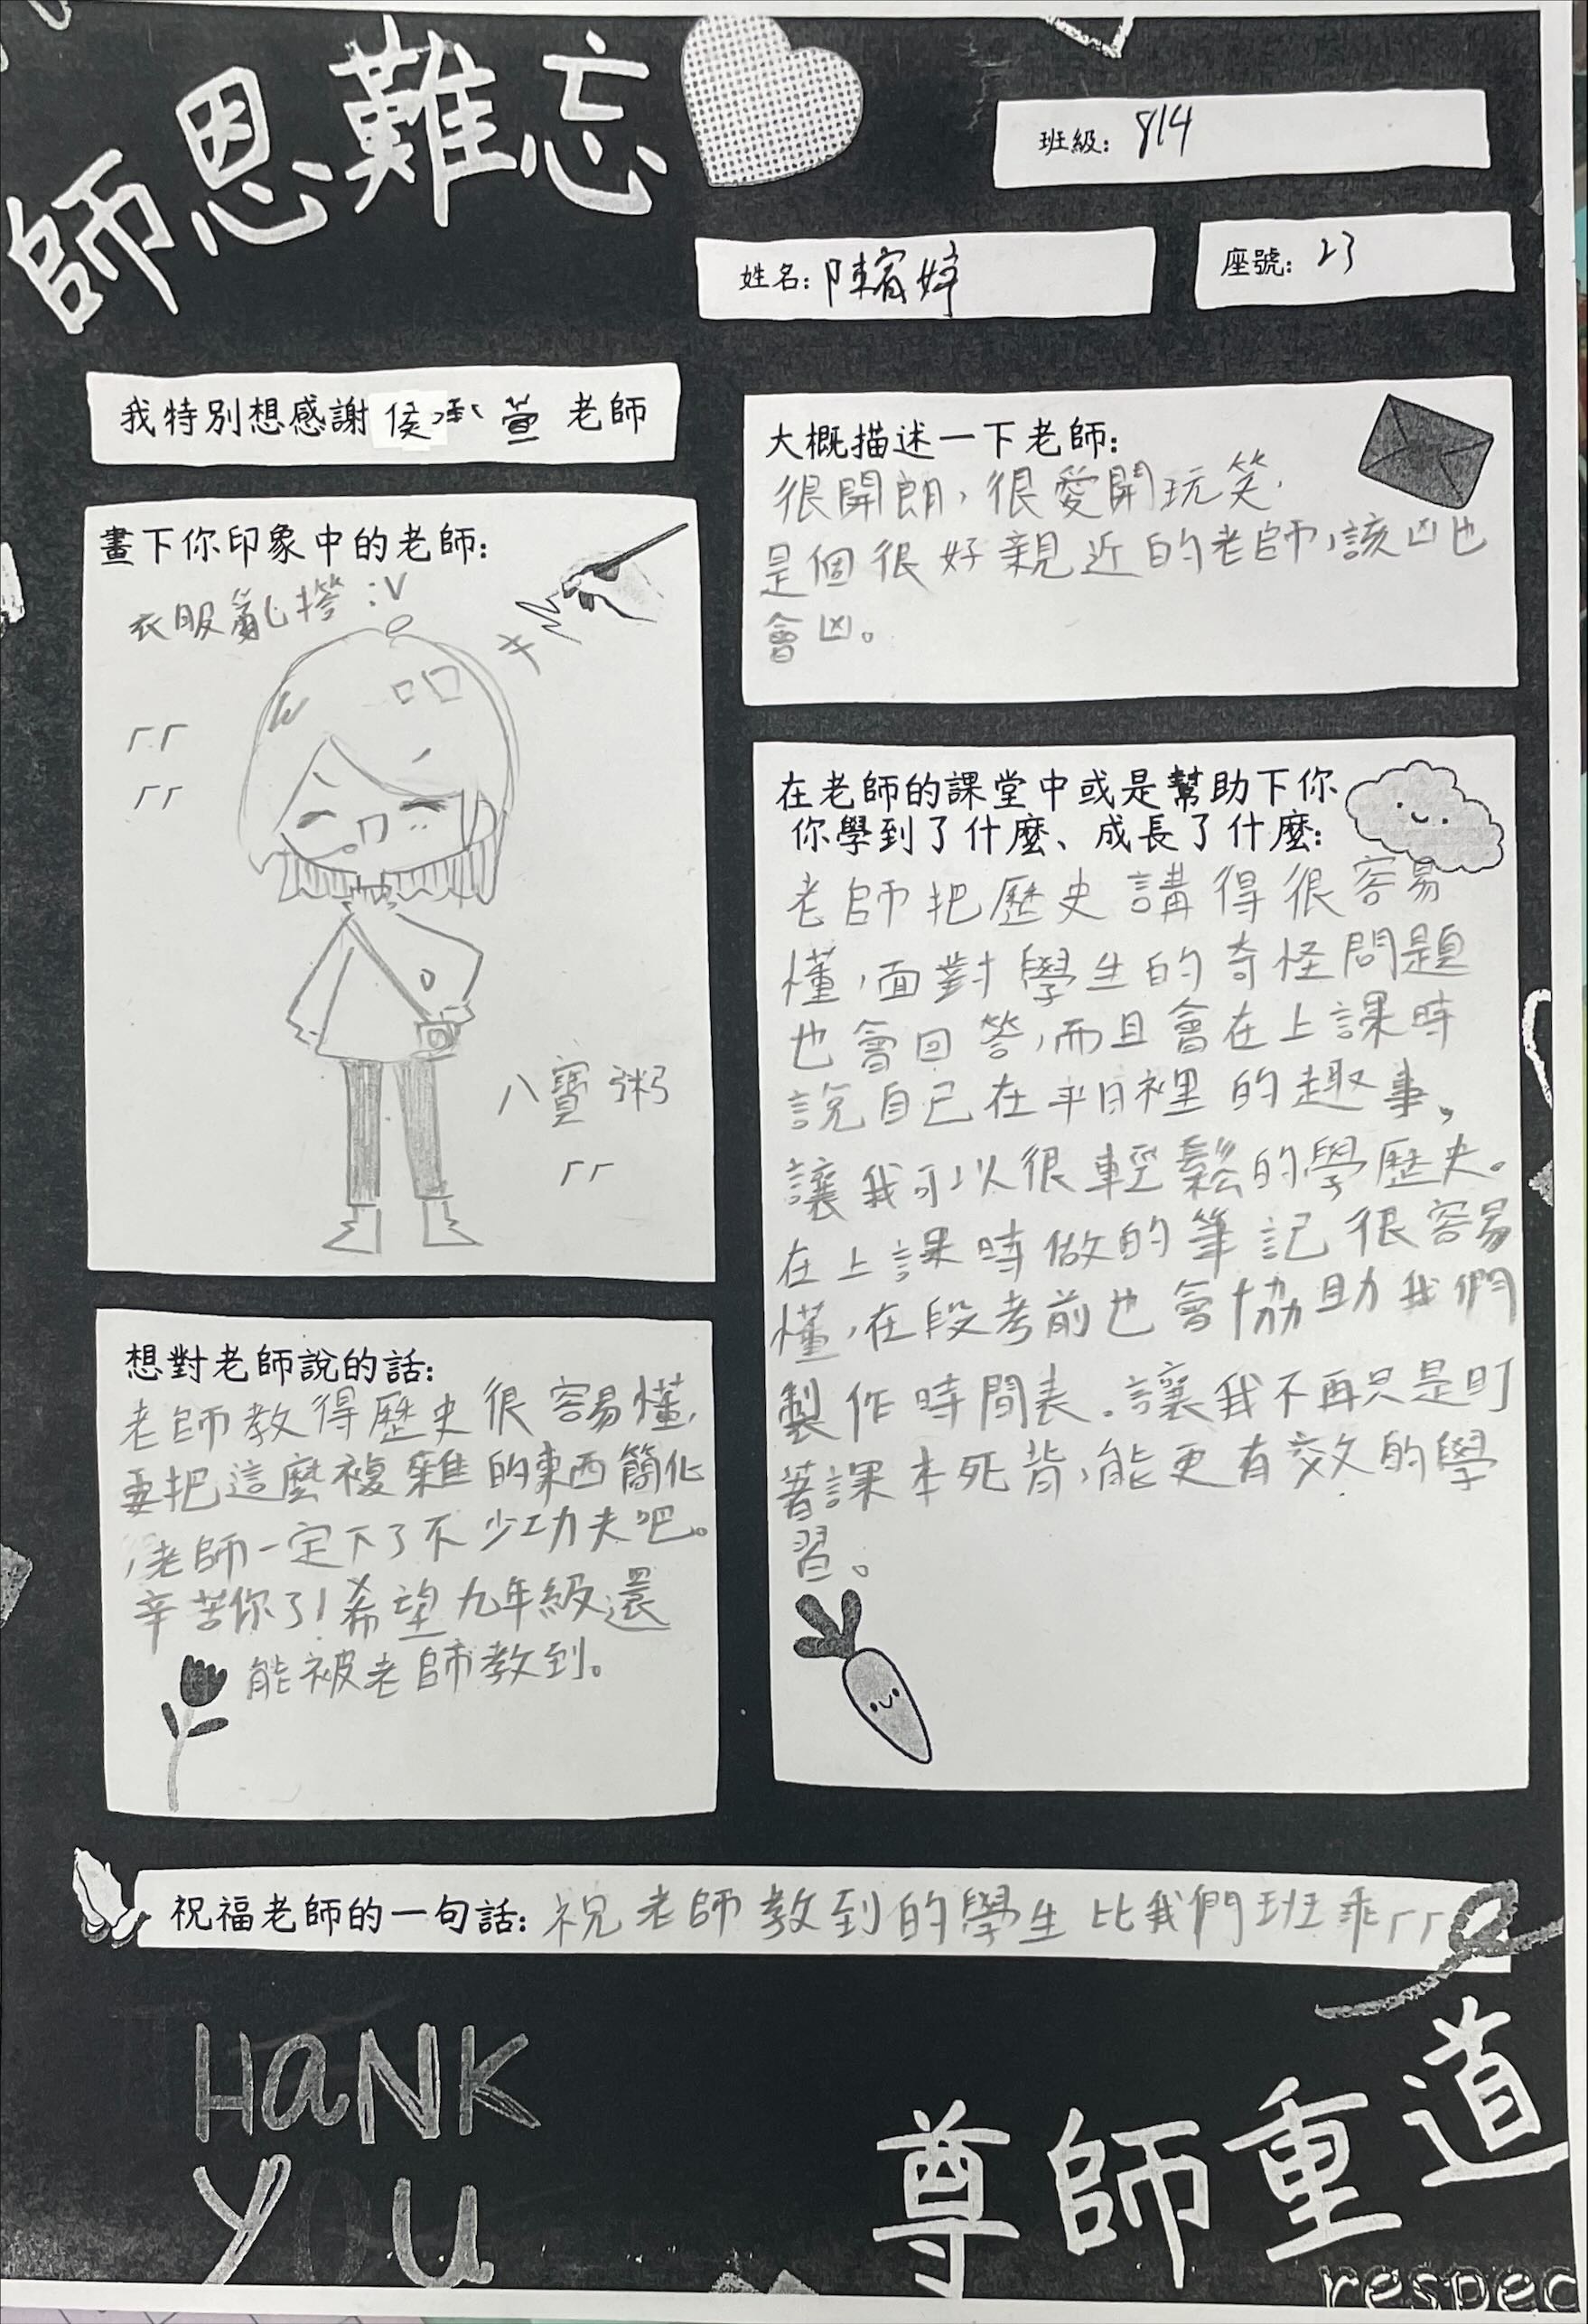 師恩難忘
班級：814
姓名：陳宥婷
座號：23
我特別想感謝侯承萱老師
畫下你印象中的老師：
衣服亂搭 :V
ㄏㄏ
ㄏㄏ
八寶粥
ㄏㄏ
大概描述一下老師：
很開朗，很愛開玩笑，
是個很好親近的老師，該凶也
會凶。
在老師的課堂中或是幫助下你
你學到了什麼、成長了什麼：
老師把歷史講得很容易
懂，面對學生的奇怪問題
也會回答，而且會在上課時
說自己在平日裡的趣事，
讓我可以很輕鬆的學歷史。
在上課時做的筆記很容易
懂，在段考前也會協助我們
製作時間表。讓我不再只是盯
著課本死背，能更有效的學
習。
想對老師說的話：
老師教得歷史很容易懂，
要把這麼複雜的東西簡化
，老師一定下了不少功夫吧。
辛苦你了！希望九年級還
能被老師教到。
祝福老師的一句話：祝老師教到的學生比我們班乖ㄏㄏ
HaNK
YOU
尊師重道
respec